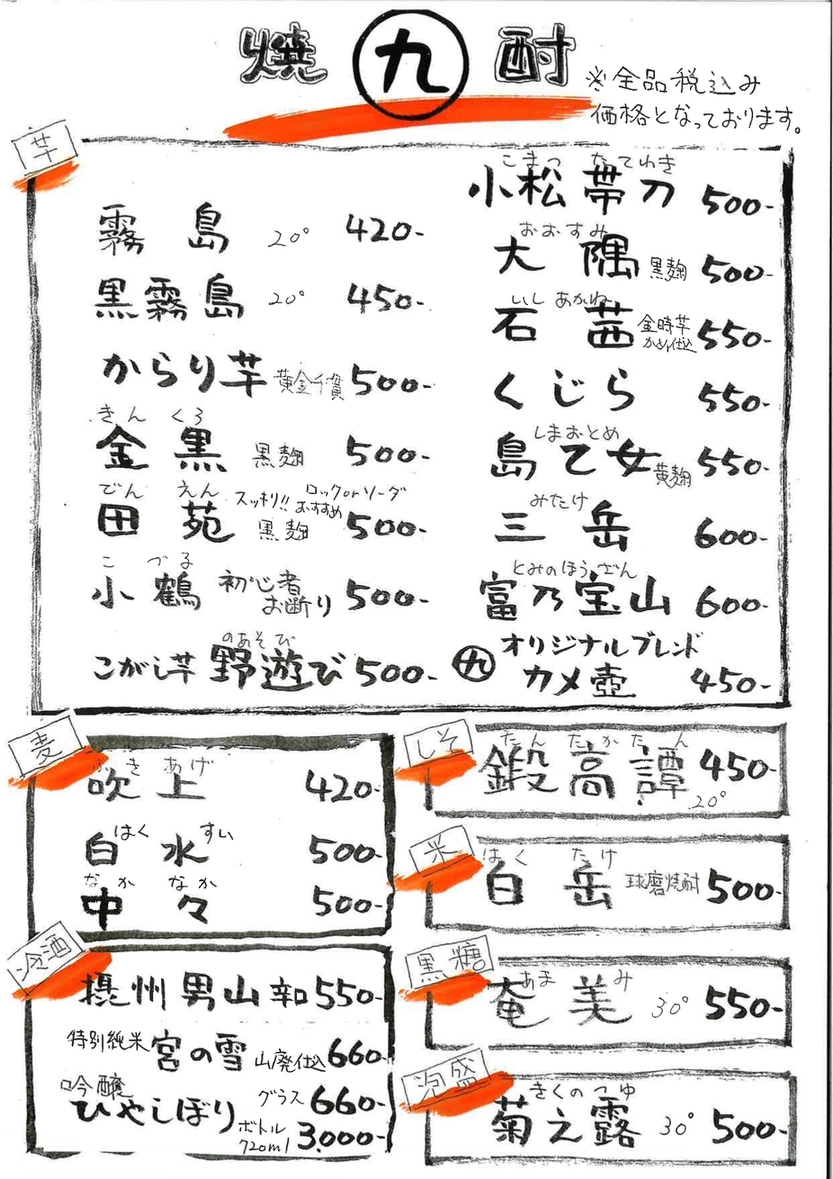 焼 九 酎
※全品税込み
価格となっております。
芋
霧島 20° 420-
黒霧島 20° 450-
からり芋 黄金千貫 500-
きんくろ
金黒 黒麹 500-
でんえん スッキリ!! ロックorソーダ おすすめ
田苑 黒麹 500-
こづる
小鶴 初心者お断り 500-
のあそび
こがし芋 野遊び 500-
こまつ たてわき
小松帯刀 500-
おおすみ
大隅 黒麹 500-
いしあかね
石茜 金時芋 かめ仕込 550-
くじら 550-
しまおとめ
島乙女 黄麹 550-
みたけ
三岳 600-
とみのほうざん
富乃宝山 600-
九 オリジナルブレンド
カメ壺 450-
麦
ふきあげ
吹上 420-
はくすい
白水 500-
なかなか
中々 500-
しそ
たんたかたん
鍛高譚 20° 450-
米
はくたけ
白岳 球磨焼酎 500-
黒糖
あまみ
奄美 30° 550-
泡盛
きくのつゆ
菊之露 30° 500-
冷酒
摂州男山 辛口 550-
特別純米 宮の雪 山廃仕込 660-
吟醸
ひやしぼり グラス 660-
ボトル 720ml 3,000-